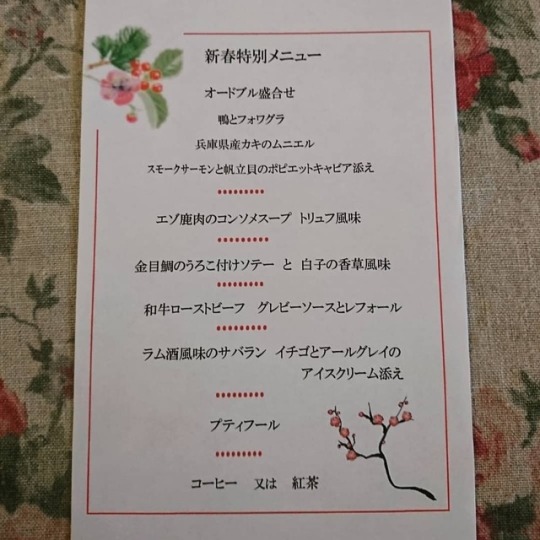 新春特別メニュー
オードブル盛合せ
鴨とフォワグラ
兵庫県産カキのムニエル
スモークサーモンと帆立貝のポピエットキャビア添え
エゾ鹿肉のコンソメスープ トリュフ風味
金目鯛のうろこ付けソテー と 白子の香草風味
和牛ローストビーフ グレビーソースとレフォール
ラム酒風味のサバラン イチゴとアールグレイの
アイスクリーム添え
プティフール
コーヒー 又は 紅茶